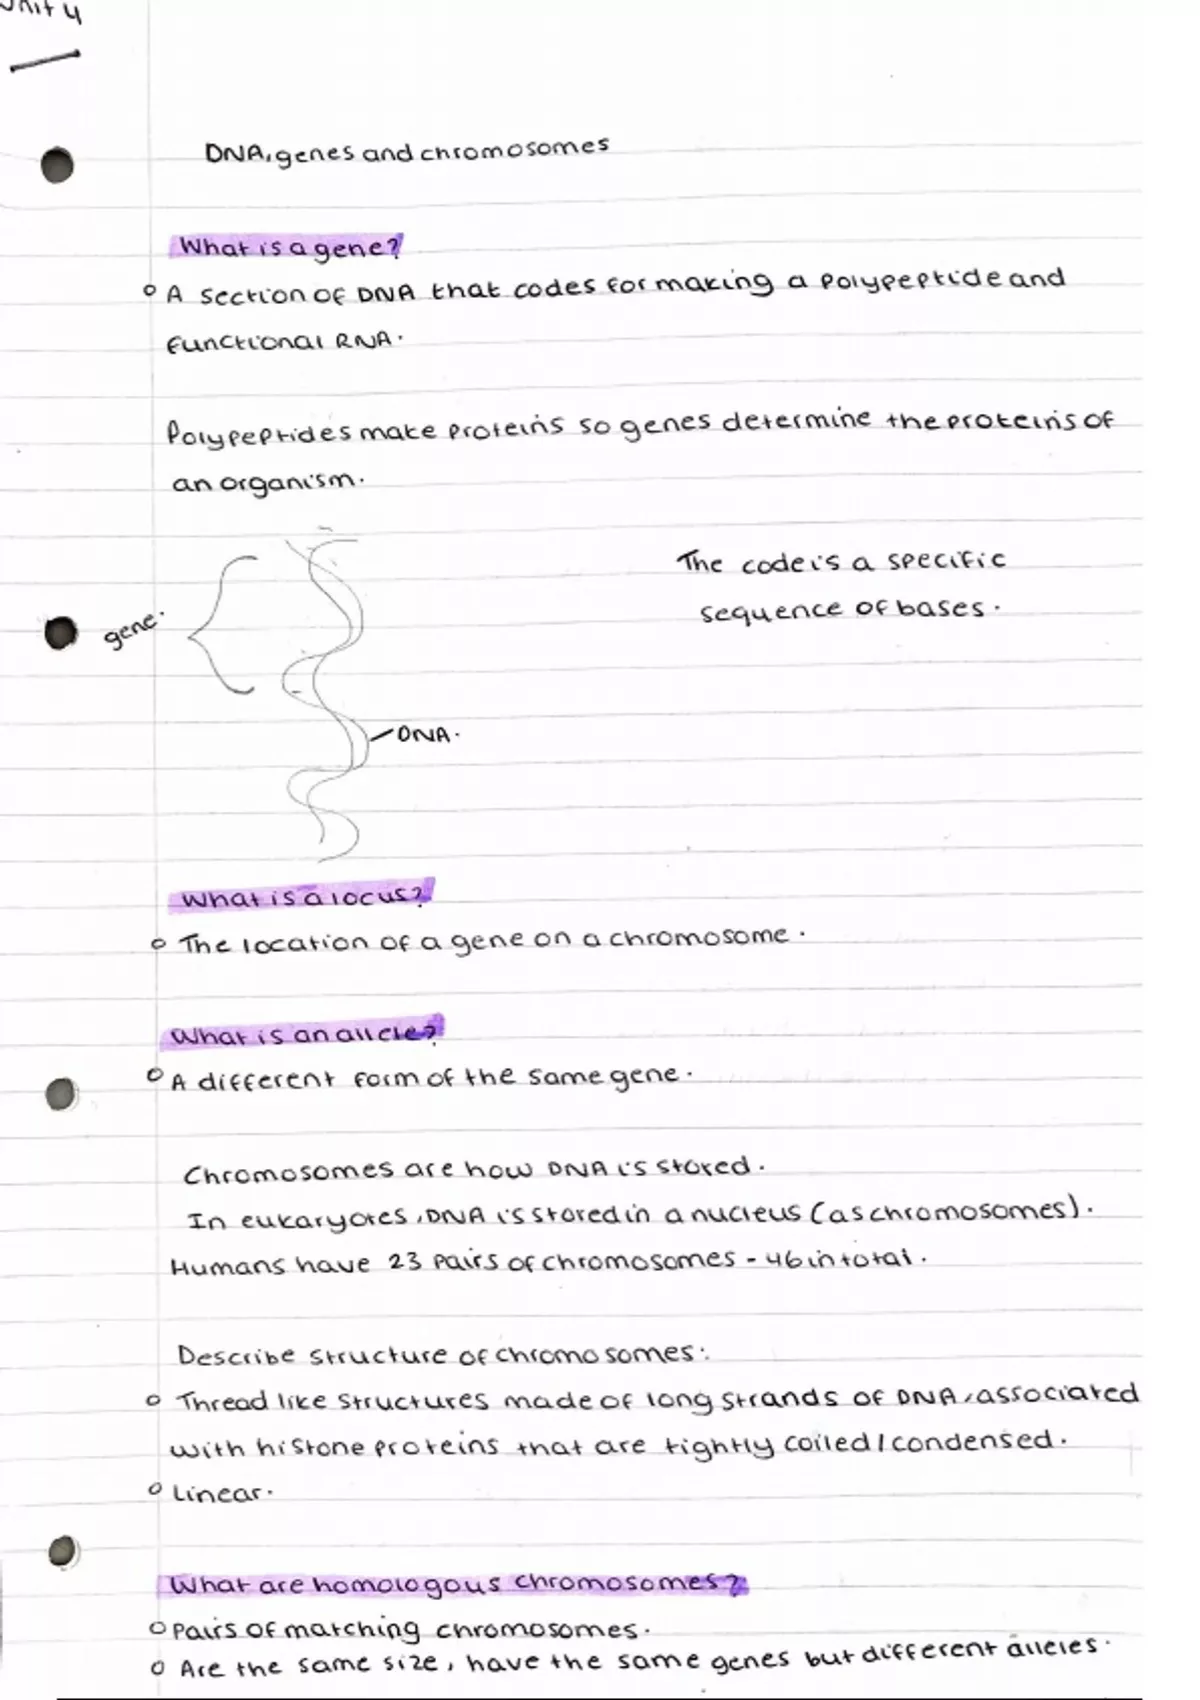 Unit 4
DNA, genes and chromosomes
What is a gene?
A section of DNA that codes for making a polypeptide and
functional RNA.
Polypeptides make proteins so genes determine the proteins of
an organism.
The code is a specific
sequence of bases.
gene.
DNA.
What is a locus?
The location of a gene on a chromosome.
What is an allele?
A different form of the same gene.
Chromosomes are how DNA is stored.
In eukaryotes, DNA is stored in a nucleus (as chromosomes).
Humans have 23 pairs of chromosomes - 46 in total.
Describe structure of chromosomes:
Thread like structures made of long strands of DNA, associated
with histone proteins that are tightly coiled/condensed.
Linear.
What are homologous chromosomes?
Pairs of matching chromosomes.
Are the same size, have the same genes but different alleles.